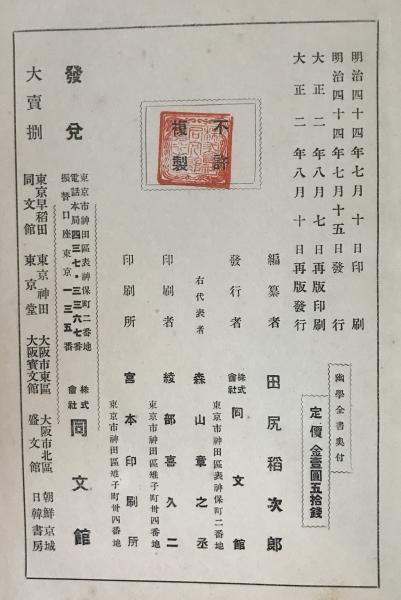 明治四十四年七月十日印刷
明治四十四年七月十五日發行
大正二年八月七日再版印刷
大正二年八月十日再版發行
幽學全書奥付
定價金壹圓五拾錢
不許
複製
編纂者 田尻稻次郎
發行者 株式會社 同文館
東京市神田區表神保町二番地
右代表者 森山章之丞
印刷者 綾部喜久二
東京市神田區雉子町卅四番地
印刷所 宮本印刷所
東京市神田區雉子町卅四番地
發兌
東京市神田區表神保町二番地
電話本局四三七・三三六七番
振替口座東京一三五番
株式會社 同文館
大賣捌
東京早稻田 同文館
東京神田 東京堂
大阪市東區 大阪寳文館
大阪市北區 盛文館
朝鮮京城 日韓書房